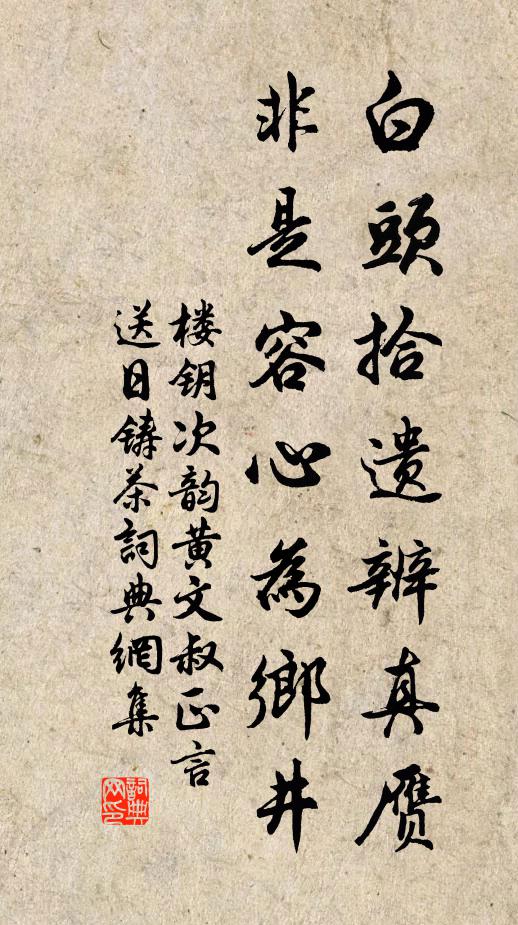 白頭拾遗辨真赝
非是容心為鄉井
楼钥次韵黄文叔正言
送日铸茶詞典網集
詞典
网印